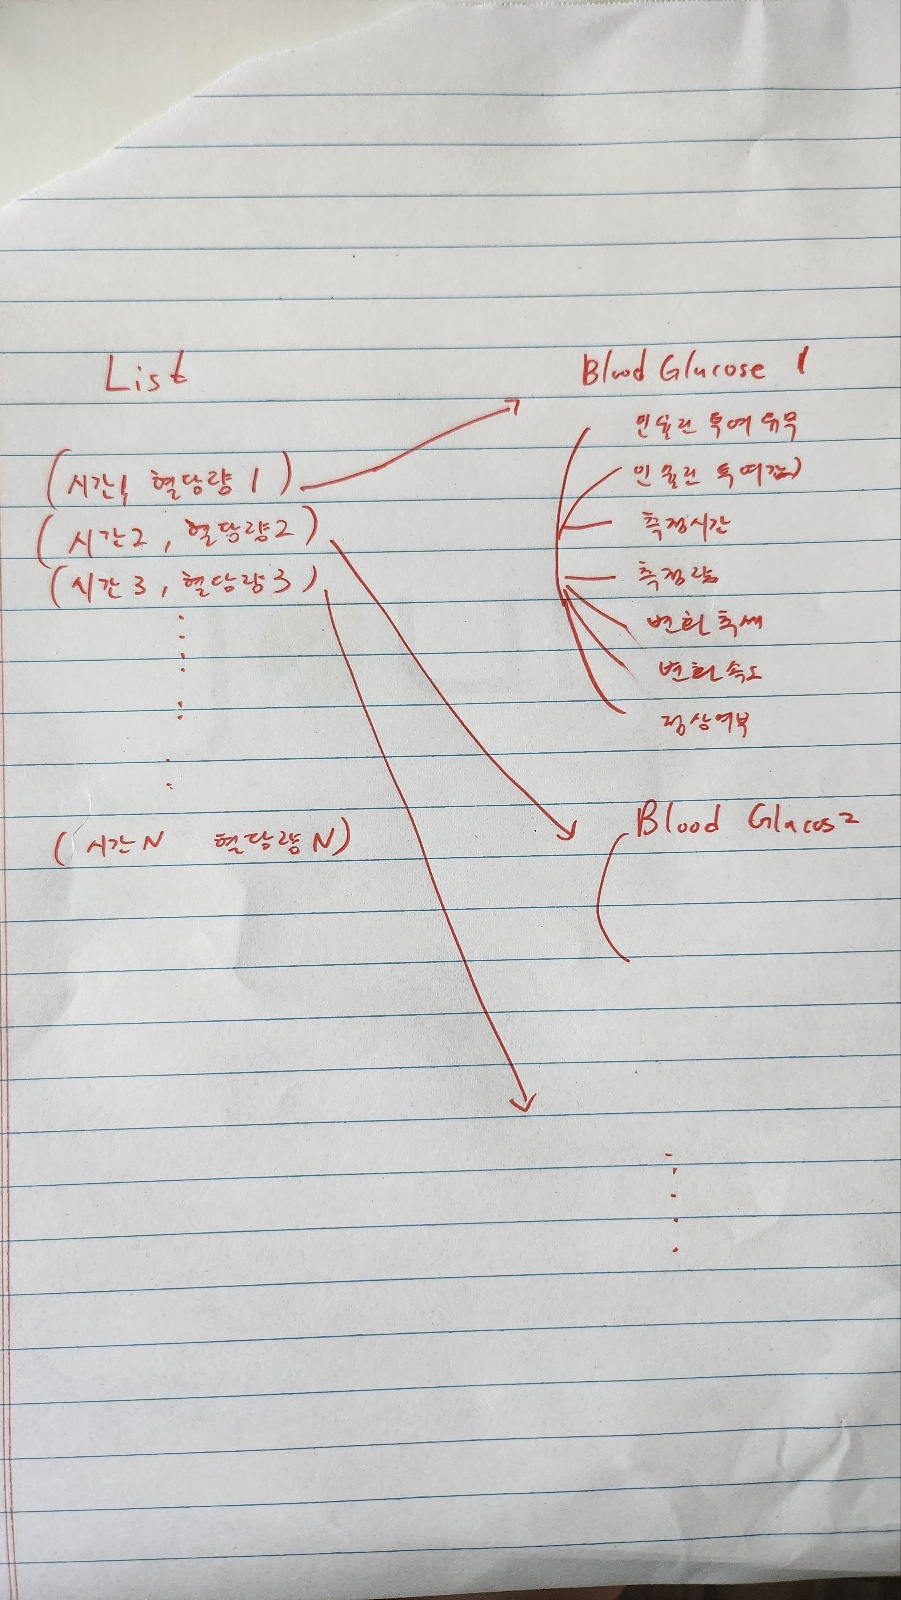 List
(시간1, 혈당량1)
(시간2, 혈당량2)
(시간3, 혈당량3)
(시간N 혈당량N)
Blood Glucose 1
인슐린 투여 유무
인슐린 투여
측정시간
측정량
변화 추세
변화 속도
정상여부
Blood Glucos2